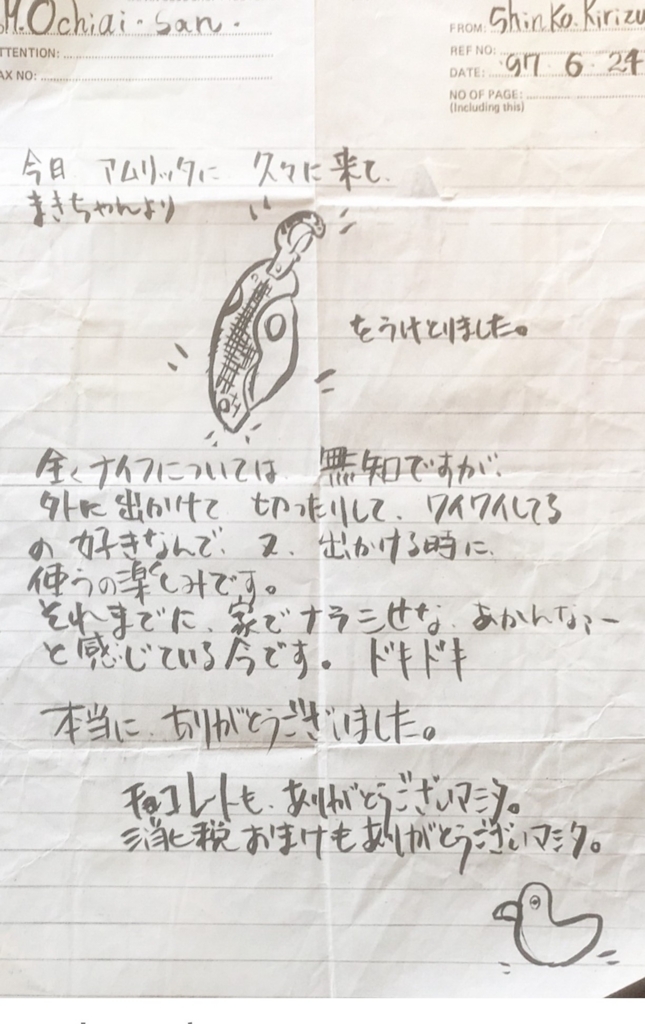 M.Ochiai-san.
TTENTION:
AX NO:
FROM: Shinko.Kirizu
REF NO:
DATE: '97.6.24
NO OF PAGE:
(Including this)
今日 アムリッタに 久々に来て、
まきちゃんより
をうけとりました。
全くナイフについては 無知ですが、
外に出かけて 切ったりして、ワイワイしてる
の好きなんで、又、出かける時に、
使うの楽しみです。
それまでに、家でナラシせな、あかんなァー
と感じている今です。ドキドキ
本当に、ありがとうございました。
チョコレートも、ありがとうございマシタ。
消化税おまけもありがとうございマシタ。